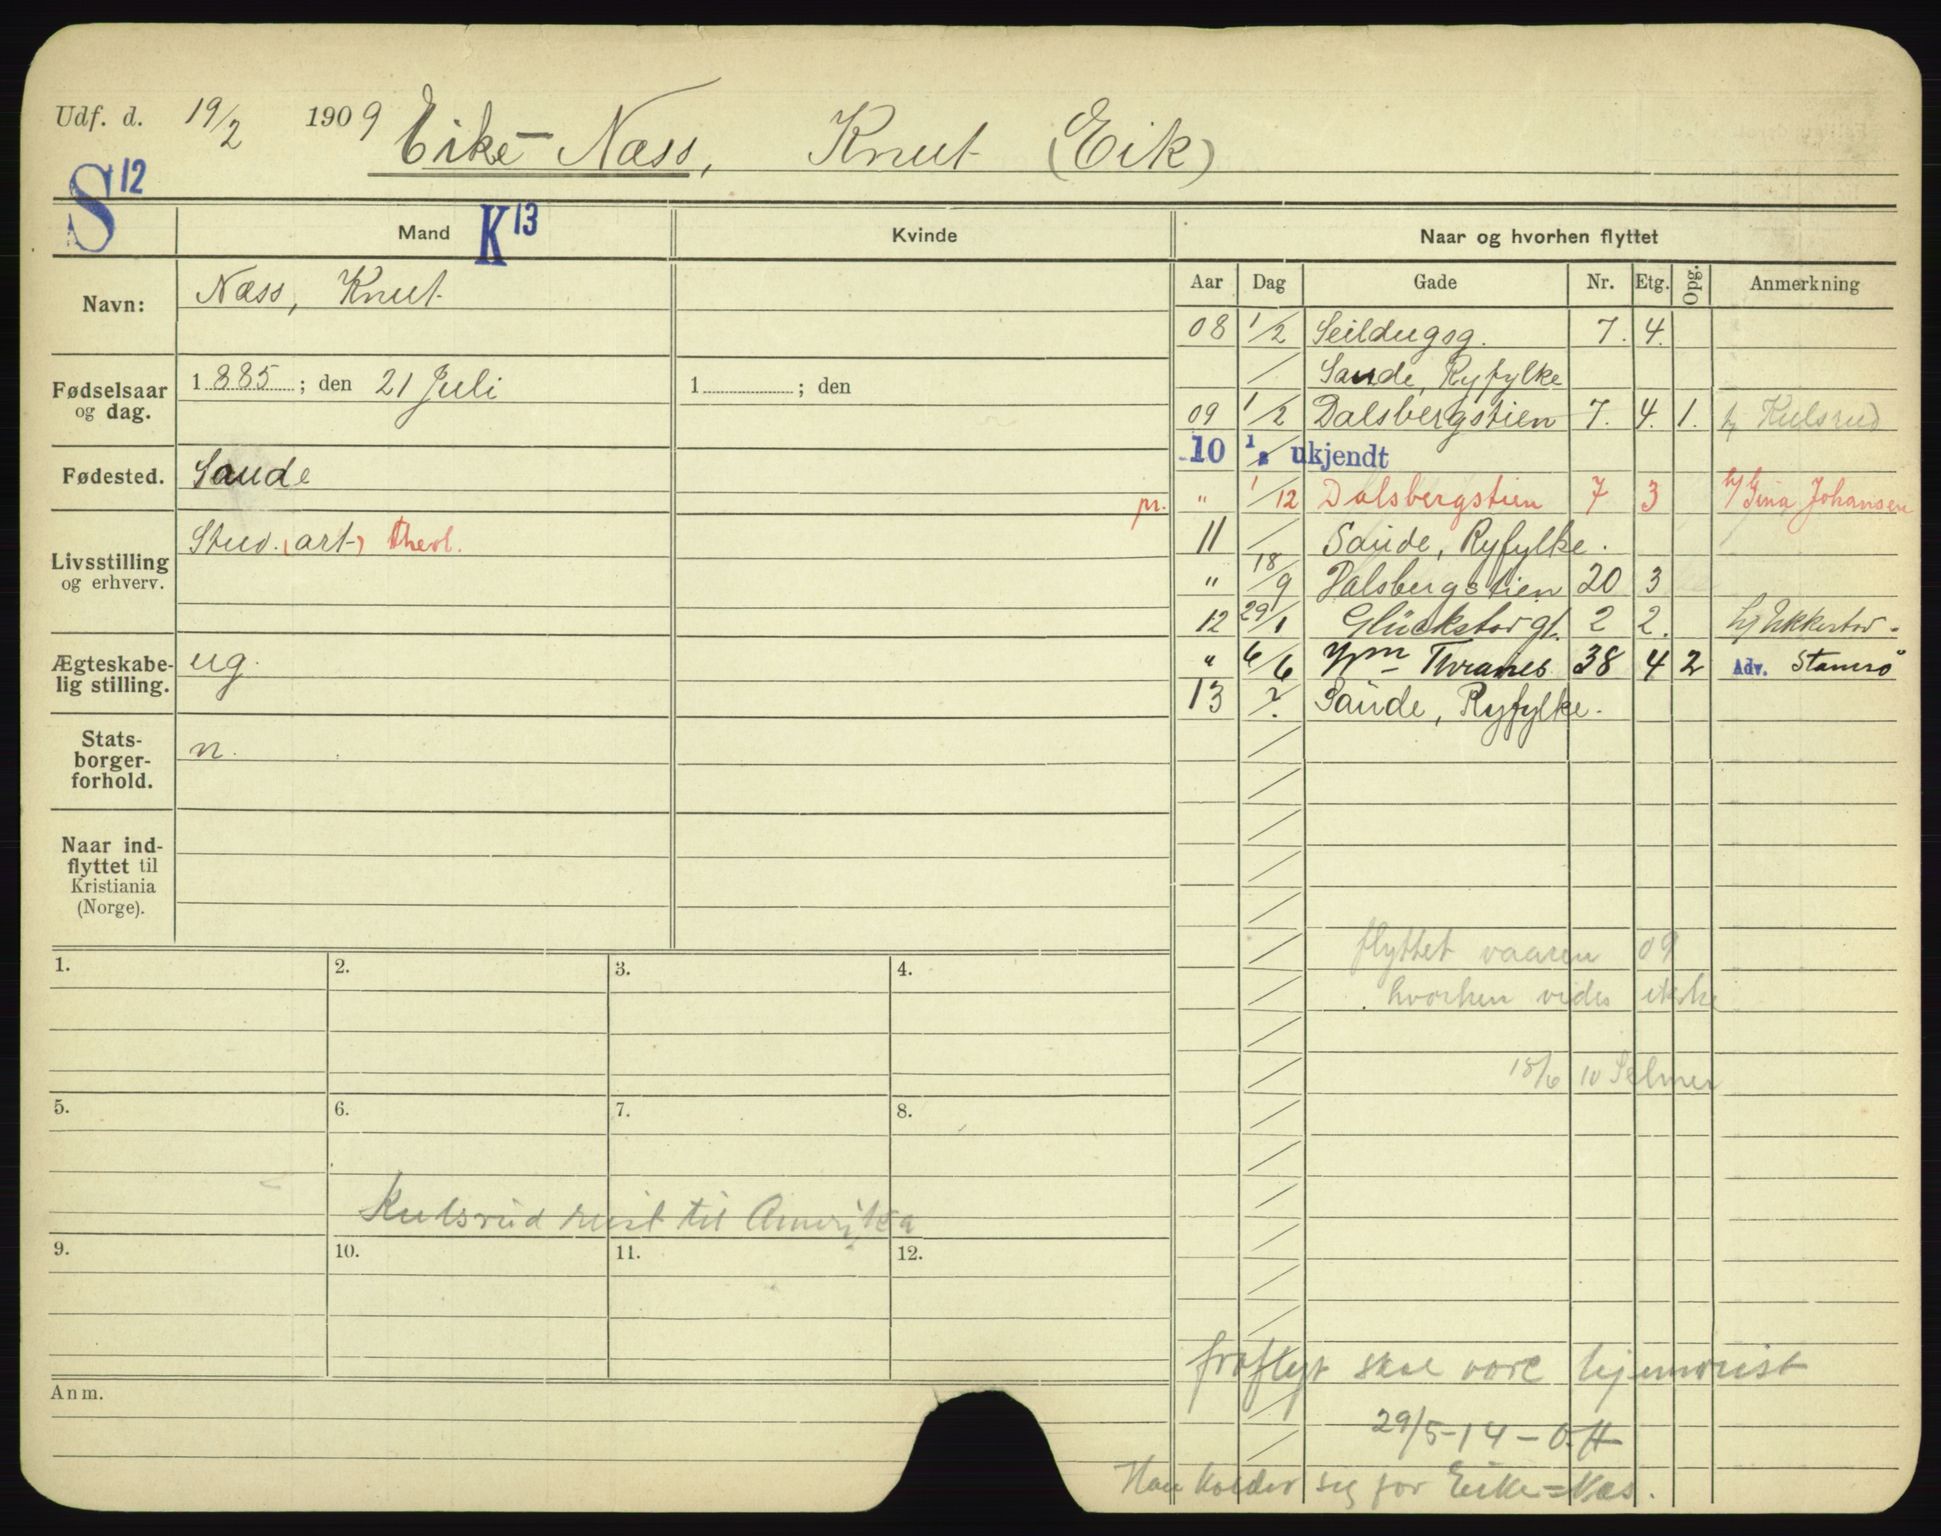 Udf. d. 19/2 1909 Eike-Næss, Knut (Eik)
S 12
Mand K 13 Kvinde Naar og hvorhen flyttet
Aar Dag Gade Nr. Etg. Opg. Anmerkning
Navn: Næss, Knut
Fødselsaar og dag. 1885; den 21 Juli 1 ; den
Fødested. Saude
Livsstilling og erhverv. Stud. (art) theol.
Ægteskabelig stilling. ug.
Statsborgerforhold. n.
Naar indflyttet til Kristiania (Norge).
08 1/2 Seildugsg. 7. 4.
Saude, Ryfylke
09 1/2 Dalsbergstien 7. 4. 1. h/ Kulsrud
10 1/2 ukjendt
pr. " 1/12 Dalsbergstien 7 3 h/ Gina Johansen
11 Saude, Ryfylke.
" 18/9 Dalsbergstien 20 3
12 29/1 Glückstadgt. 2 2.
" 6/6 Wm Thranes 38 4 2 Adv. Stamsö
13 ? Saude, Ryfylke.
flyttet vaaren 09
hvorhen vides ikke
18/6 10 Selmer
1. 2. 3. 4.
5. 6. 7. 8.
Kulsrud reist til Amerika
9. 10. 11. 12.
fraflyt skal være hjemreist
29/5-14-O.H
Anm.
Han kalder sig for Eike=Næs.